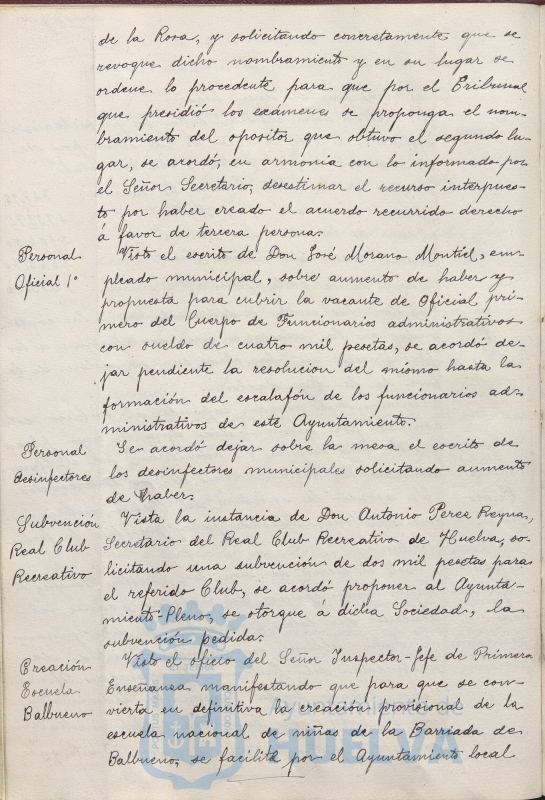 de la Rosa, y solicitando concretamente que se
revoque dicho nombramiento y en su lugar se
ordene lo procedente para que por el Tribunal
que presidió los exámenes se proponga el nom-
bramiento del opositor que obtuvo el segundo lu-
gar, se acordó, en armonia con lo informado por
el Señor Secretario, desestimar el recurso interpues-
to por haber creado el acuerdo recurrido derecho
á favor de tercera persona.
Personal
Oficial 1º
Visto el escrito de Don José Morano Montiel, em-
pleado municipal, sobre aumento de haber y
propuesta para cubrir la vacante de Oficial pri-
mero del Cuerpo de Funcionarios administrativos
con sueldo de cuatro mil pesetas, se acordó de-
jar pendiente la resolucion del mismo hasta la
formación del escalafón de los funcionarios ad-
ministrativos de este Ayuntamiento.
Personal
desinfectores
Se acordó dejar sobre la mesa el escrito de
los desinfectores municipales solicitando aumento
de haber.
Subvención
Real Club
Recreativo
Vista la instancia de Don Antonio Perez Reyna,
Secretario del Real Club Recreativo de Huelva, so-
licitando una subvención de dos mil pesetas para
el referido Club, se acordó proponer al Ayunta-
miento-Pleno, se otorgue á dicha Sociedad, la
subvención pedida.
Creación
Escuela
Balbueno
Visto el oficio del Señor Inspector-Jefe de Primera
Enseñansa manifestando que para que se con-
vierta en definitiva la creación provisional de la
escuela nacional de niñas de la Barriada de
Balbueno, se facilite por el Ayuntamiento local
Ayuntamiento de
HUELVA